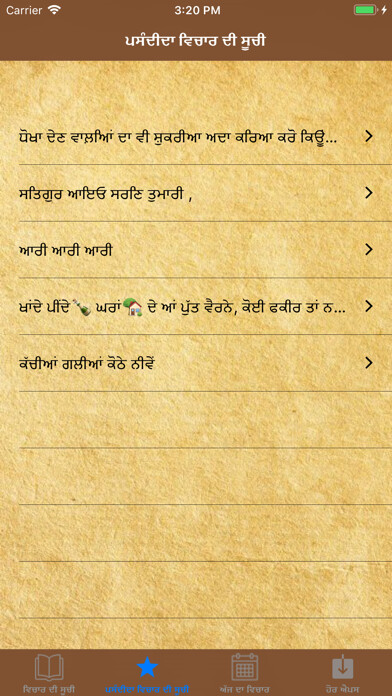 Carrier 3:20 PM
ਪਸੰਦੀਦਾ ਵਿਚਾਰ ਦੀ ਸੂਚੀ
ਧੋਖਾ ਦੇਣ ਵਾਲ਼ਿਆਂ ਦਾ ਵੀ ਸੁਕਰੀਆ ਅਦਾ ਕਰਿਆ ਕਰੋ ਕਿਊ...
ਸਤਿਗੁਰ ਆਇਓ ਸਰਣਿ ਤੁਮਾਰੀ ,
ਆਰੀ ਆਰੀ ਆਰੀ
ਖਾਂਦੇ ਪੀਂਦੇ🍾 ਘਰਾਂ🏡 ਦੇ ਆਂ ਪੁੱਤ ਵੈਰਨੇ, ਕੋਈ ਫਕੀਰ ਤਾਂ ਨ...
ਕੱਚੀਆਂ ਗਲੀਆਂ ਕੋਠੇ ਨੀਵੇਂ
ਵਿਚਾਰ ਦੀ ਸੂਚੀ ਪਸੰਦੀਦਾ ਵਿਚਾਰ ਦੀ ਸੂਚੀ ਅੱਜ ਦਾ ਵਿਚਾਰ ਹੋਰ ਐਪਸ